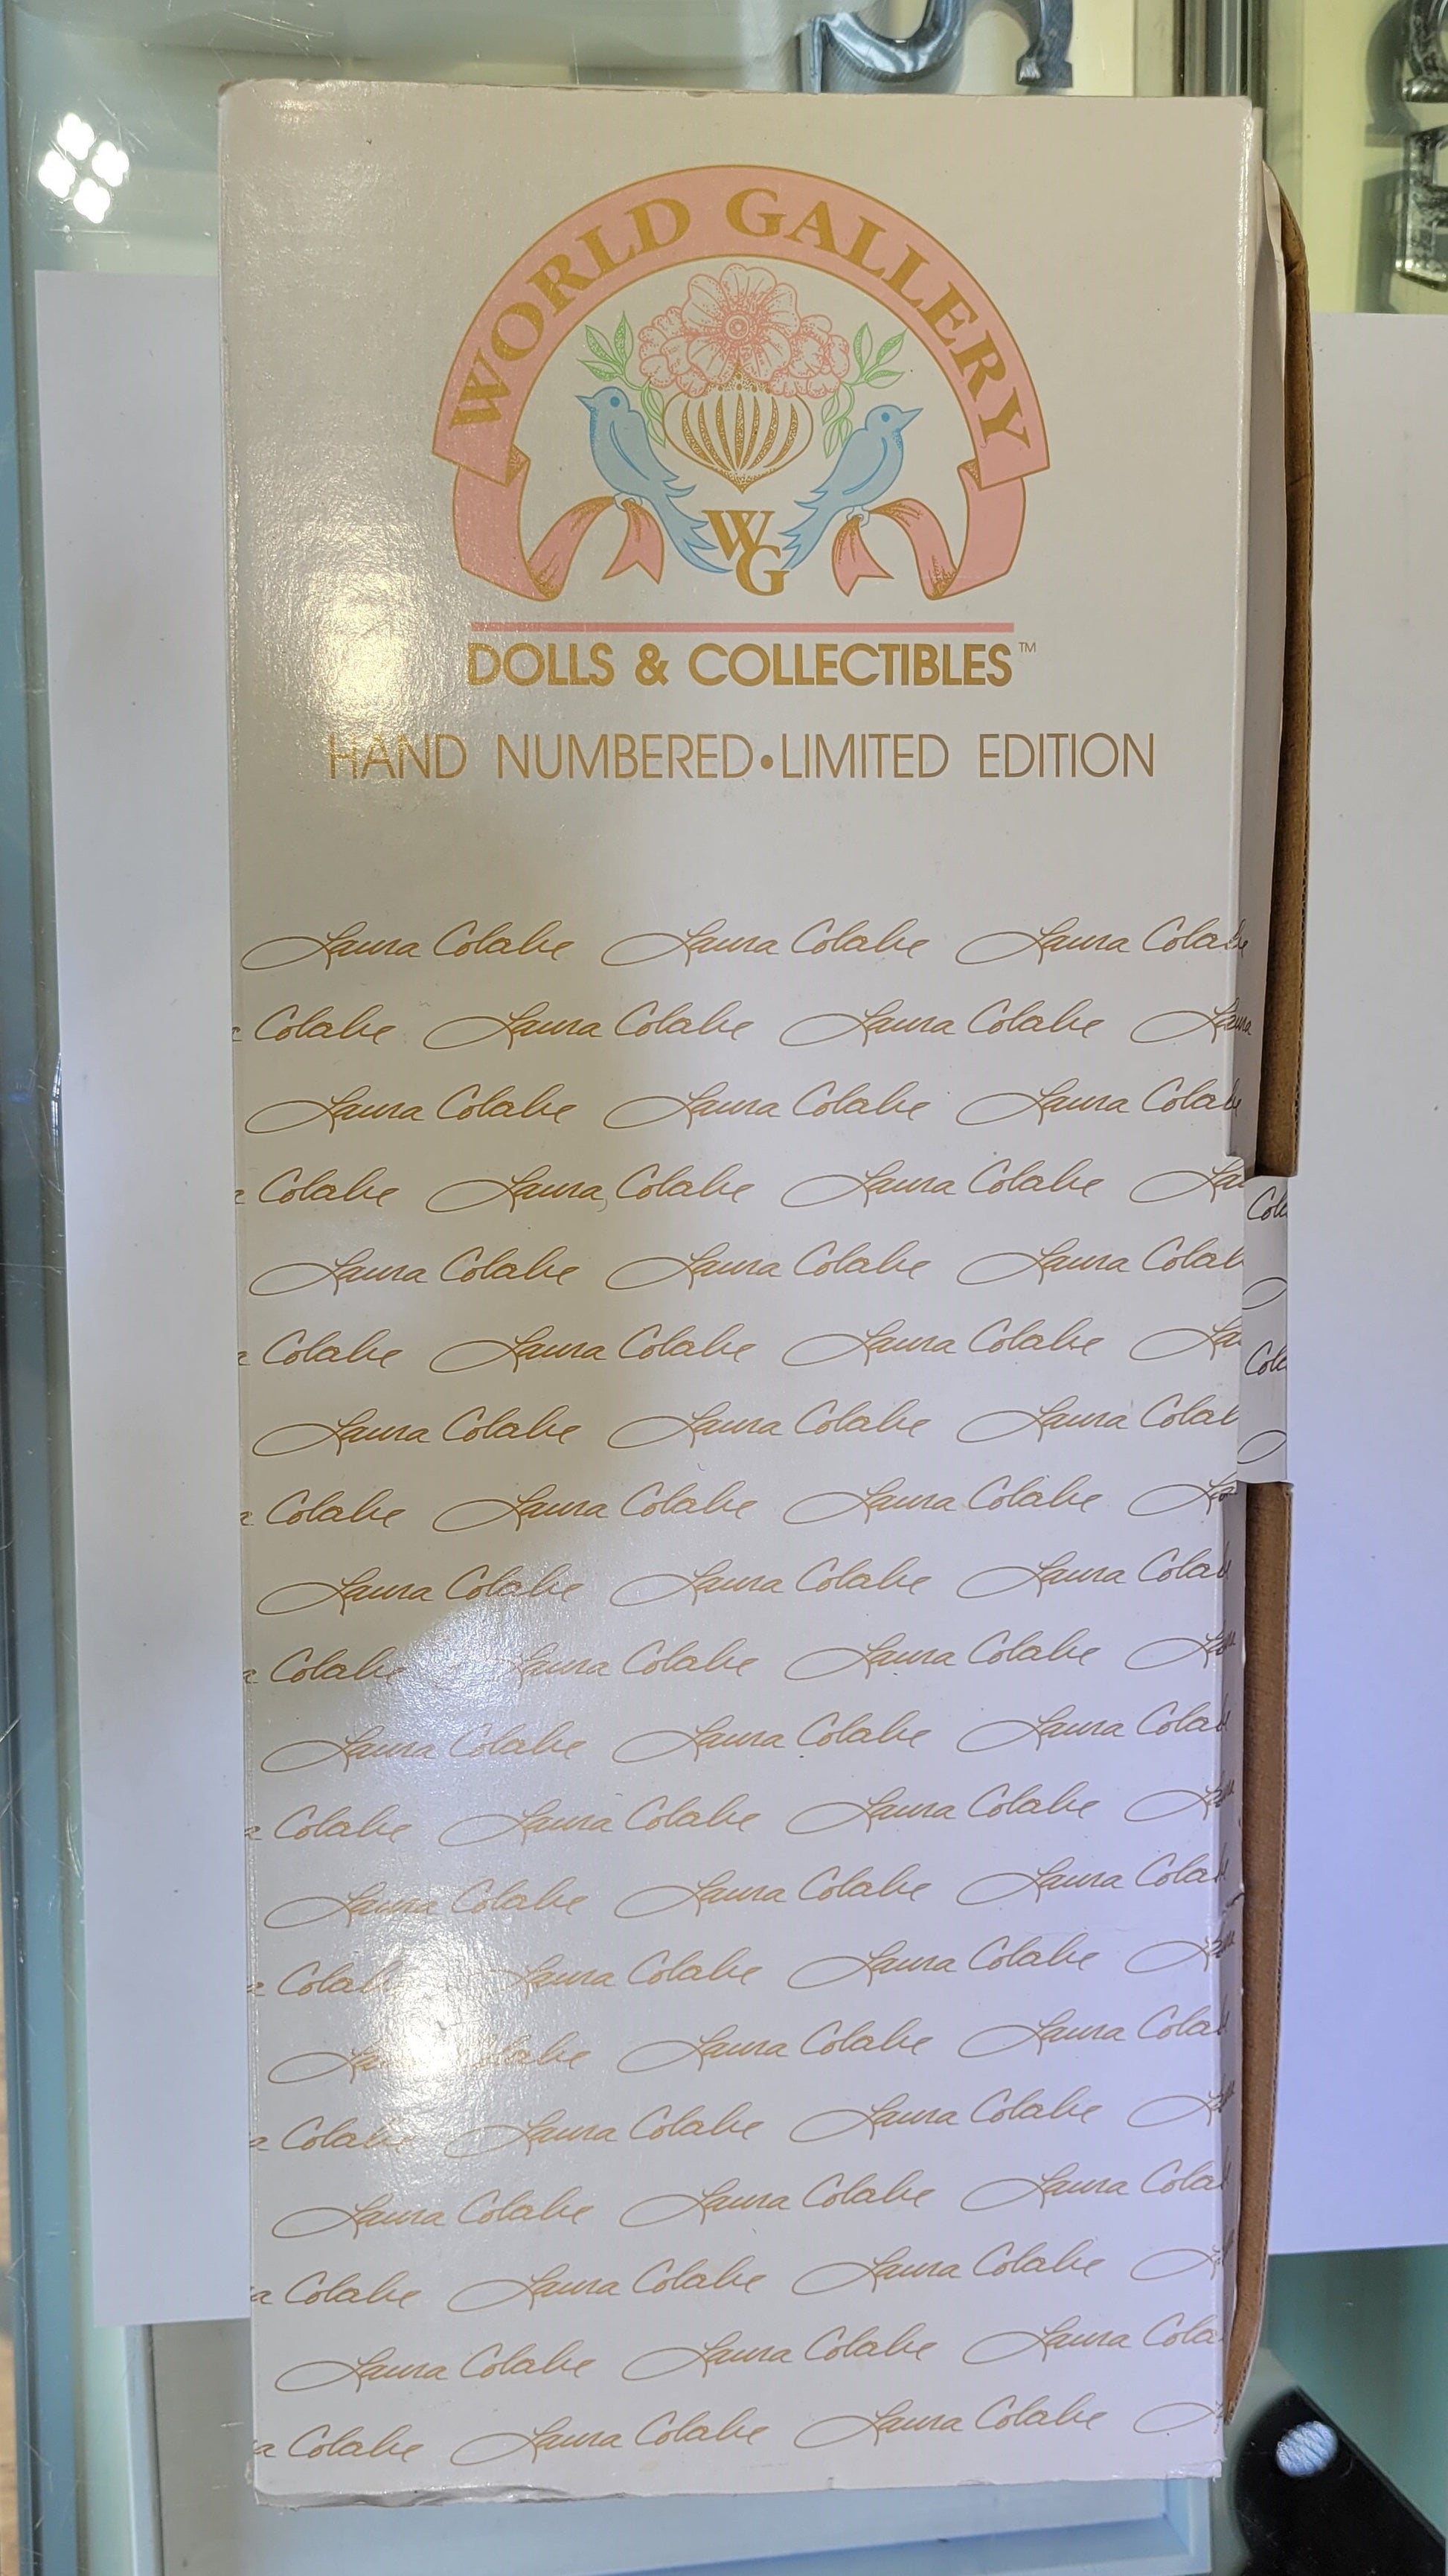 WORLD GALLERY
WG
DOLLS & COLLECTIBLES™
HAND NUMBERED•LIMITED EDITION
Laura Colabe Laura Colabe Laura Colabe
Colabe Laura Colabe Laura Colabe Laura
Laura Colabe Laura Colabe Laura Colabe
Colabe Laura Colabe Laura Colabe
Laura Colabe Laura Colabe Laura
Colabe Laura Colabe Laura Colabe
Laura Colabe Laura Colabe Laura
Colabe Laura Colabe Laura Colabe
Laura Colabe Laura Colabe Laura
Colabe Laura Colabe Laura Colabe
Laura Colabe Laura Colabe Laura
Colabe Laura Colabe Laura Colabe
Laura Colabe Laura Colabe Laura
Laura Colabe Laura Colabe
Laura Colabe Laura
Colabe Laura Colabe Laura Colabe
Laura Colabe Laura Colabe Laura
Colabe Laura Colabe Laura Colabe
Laura Colabe Laura Colabe Laura
Colabe Laura Colabe Laura Colabe